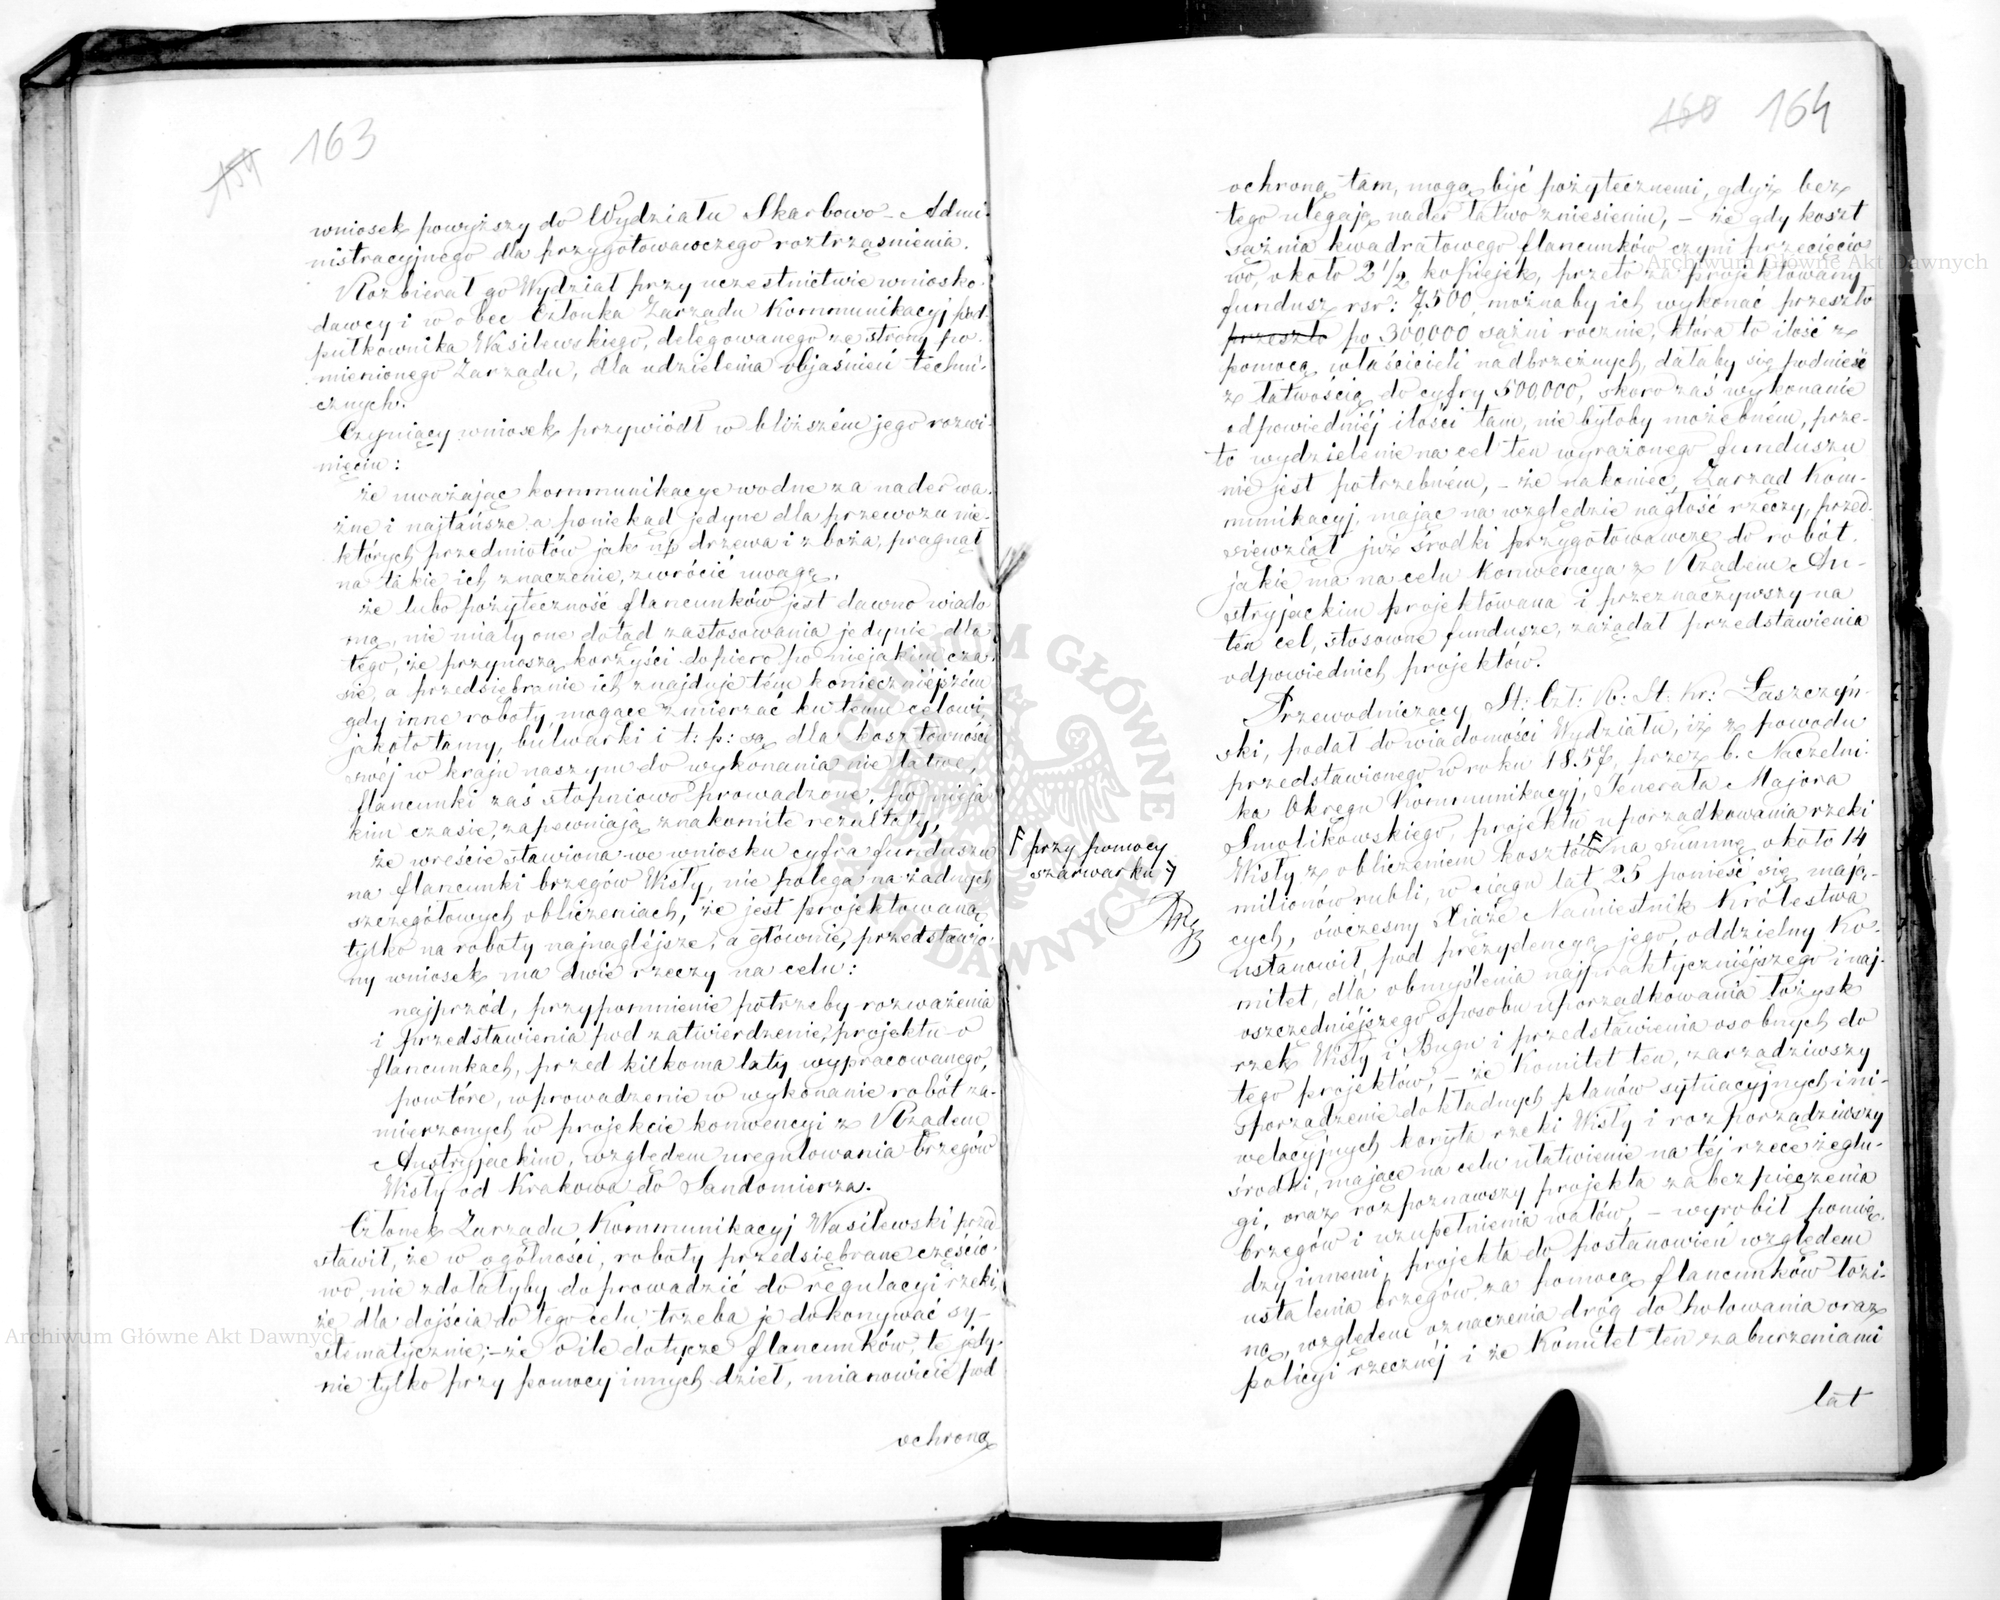 159 163
wniosek powyższy do Wydziału Skarbowo-Admi-
nistracyjnego dla przygotowawczego roztrząśnienia.
Rozbierał go Wydział przy uczestnictwie wniosko-
dawcy i w obec Członka Zarządu Kommunikacyj pod-
pułkownika Wasilewskiego, delegowanego ze strony po-
mienionego Zarządu, dla udzielenia objaśnień techni-
cznych.
Czyniący wniosek przywiódł w bliższém jego rozwi-
nięciu:
że uważając kommunikacye wodne za nader wa-
żne i najtańsze a poniekąd jedyne dla przewozu nie-
których przedmiotów jak np drzewa i zboża, pragnął
na takie ich znaczenie, zwrócić uwagę,
że lubo pożyteczność flancunków jest dawno wiado-
mą, nie miały one dotąd zastosowania jedynie dla
tego, że przynoszą korzyści dopiero po niejakim cza-
sie, a przedsiębranie ich znajduje tém konieczniejszém
gdy inne roboty, mogące zmierzać ku temu celowi
jakoto tamy, bulwarki i t: p: są dla kosztowności
swéj w kraju naszym do wykonania nie łatwe,
flancunki zaś stopniowo prowadzone, po nieja-
kim czasie, zapewniają znakomite rezultaty,
że wreście stawiona we wniosku cyfra funduszu
na flancunki brzegów Wisły, nie polega na żadnych
szczegółowych obliczeniach, że jest projektowaną
tylko na roboty najnagléjsze, a głównie, przedstawio-
ny wniosek ma dwie rzeczy na celu:
najprzód, przypomnienie potrzeby rozważenia
i przedstawienia pod zatwierdzenie, projektu o
flancunkach, przed kilkoma laty wypracowanego,
powtóre, wprowadzenie w wykonanie robót za-
mierzonych w projekcie konwencyi z Rządem
Austryjackim, względem uregulowania brzegów
Wisły od Krakowa do Sandomierza.
Członek Zarządu Kommunikacyj Wasilewski przed-
stawił, że w ogólności, roboty przedsiębrane częścio-
wo, nie zdołałyby doprowadzić do regulacyi rzeki,
że dla dojścia do tego celu, trzeba je dokonywać sy-
stematycznie; – że o ile dotycze flancunków, te jedy-
nie tylko przy pomocy innych dzieł, mianowicie pod
ochroną
160 164
ochroną tam, mogą być pożytecznemi, gdyż bez
tego ulegają nader łatwo zniesieniu, – że gdy koszt
sążnia kwadratowego flancunków czyni przecięcio-
wo, około 2 1/2 kopiejek, przeto za projektowany
fundusz rsr: 7,500, możnaby ich wykonać przeszło
przeszło po 300,000 sążni rocznie, która to ilość z
pomocą właścicieli nadbrzeżnych, dałaby się podnieść
z łatwością do cyfry 500,000, skoro zaś wykonanie
odpowiedniéj ilości tam, nie byłoby możebném, prze-
to wydzielenie na cel ten wyrażonego funduszu
nie jest potrzebném, – że nakoniec, Zarząd Kom-
munikacyj, mając na względzie nagłość rzeczy, przed-
siewziął już środki przygotowawcze do robót,
jakie ma na celu Konwencya z Rządem Au-
stryjackim projektowana i przeznaczywszy na
ten cel, stosowne fundusze, zażądał przedstawienia
odpowiednich projektów.
Przewodniczący St: Czł: R: St: Kr: Łaszczyń-
ski, podał do wiadomości Wydziału, iż z powodu
przedstawionego w roku 1857, przez b. Naczelni-
ka Okręgu Kommunikacyj, Jenerała Majora
Smolikowskiego, projektu uporządkowania rzeki
Wisły z obliczeniem kosztów na summę około 14
milionów rubli, w ciągu lat 25 ponieść się mają-
cych, ówczesny Xiąże Namiestnik Królestwa
ustanowił, pod prezydencyą jego, oddzielny Ko-
mitet, dla obmyślenia najpraktyczniejszego i naj-
oszczędniejszego sposobu uporządkowania łożysk
rzek Wisły i Bugu i przedstawienia osobnych do
tego projektów; – że Komitet ten, zarządziwszy
sporządzenie dokładnych planów sytuacyjnych i ni-
welacyjnych koryta rzeki Wisły i rozporządziwszy
środki, mające na celu ułatwienie na téj rzece żeglu-
gi, oraz rozpoznawszy projekta zabezpieczenia
brzegów i uzupełnienia wałów, – wyrobił pomię-
dzy innemi, projekta do postanowień względem
ustalenia brzegów za pomocą flancunków łozi-
ną, względem oznaczenia dróg do holowania oraz
policyi rzecznéj i że Komitet ten zaburzeniami
lat
przy pomocy
szarwarku
Archiwum Główne Akt Dawnych
Archiwum Główne Akt Dawnych
ARCHIWUM GŁÓWNE AKT DAWNYCH